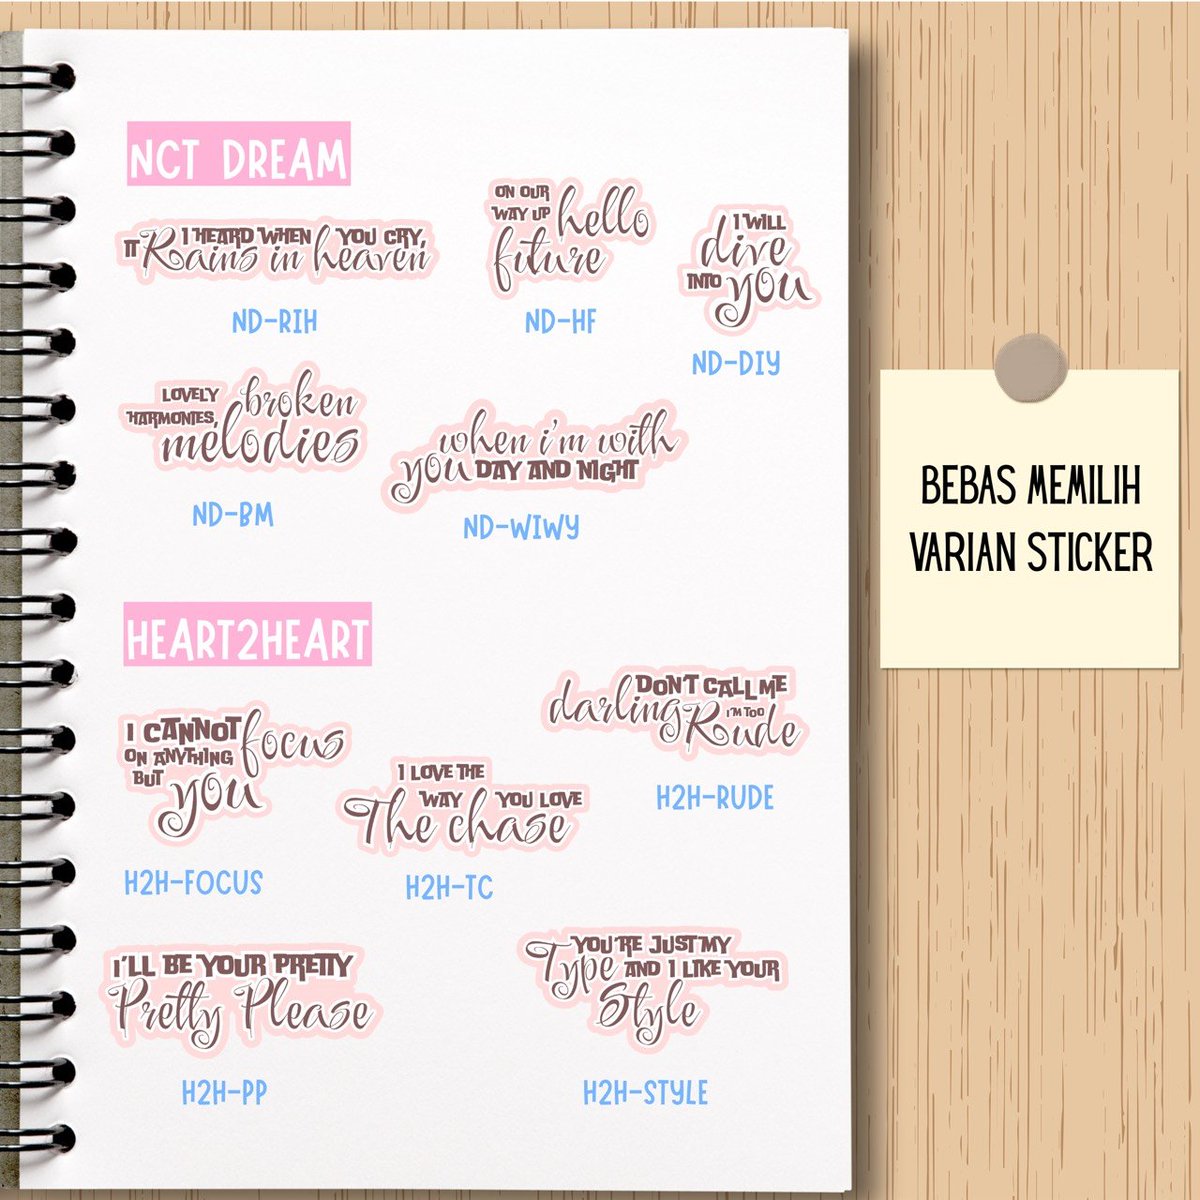 NCT DREAM
I HEARD WHEN YOU CRY,
IT Rains in heaven
ND-RIH
ON OUR
WAY UP hello
future
ND-HF
I WILL
dive
INTO you
ND-DIY
LOVELY broken
HARMONIES,
melodies
ND-BM
when i'm with
you DAY AND NIGHT
ND-WIWY
HEART2HEART
I CANNOT focus
ON ANYTHING
BUT you
H2H-FOCUS
DON'T CALL ME
darling I'M TOO
Rude
H2H-RUDE
I LOVE THE
WAY YOU LOVE
The chase
H2H-TC
I'LL BE YOUR PRETTY
Pretty Please
H2H-PP
YOU'RE JUST MY
Type AND I LIKE YOUR
Style
H2H-STYLE
BEBAS MEMILIH
VARIAN STICKER